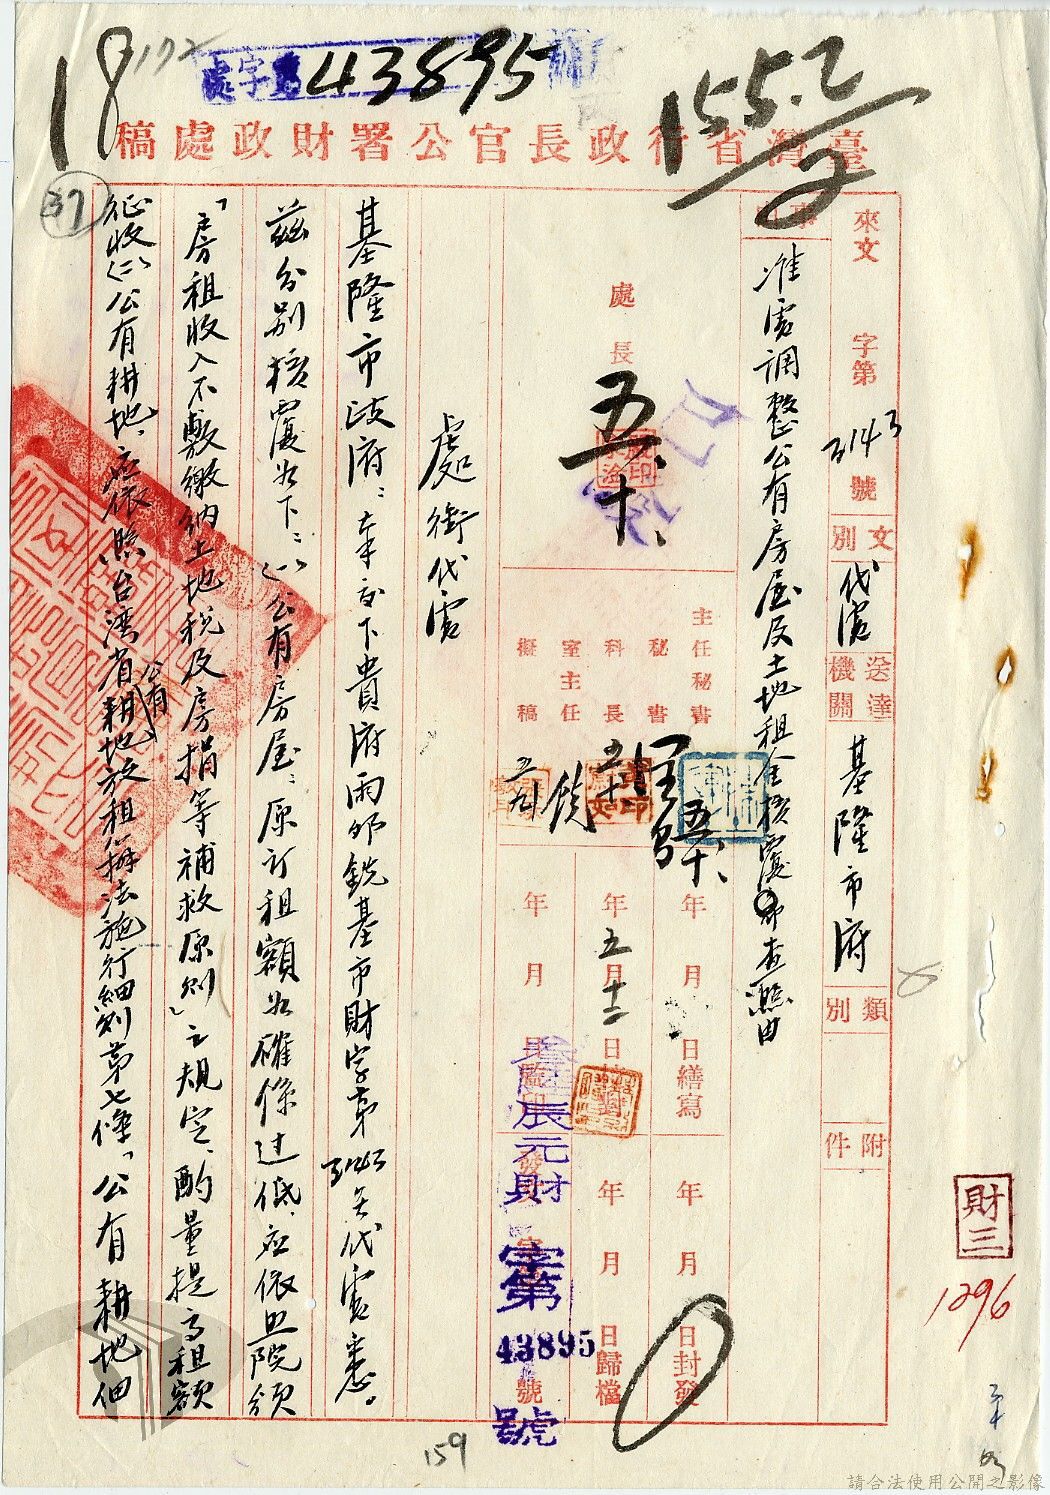 18
172
處字第 43895
155.2
2
臺灣省行政長官公署財政處稿
37
來文 字第 3143 號
文別 代電
送達機關 基隆市府
類別
附件
事由 准電調整公有房屋及土地租金核覆希查照由
處長 五、十、
主任秘書
秘書
科長
室主任
擬稿
五、十、
五、十、
五、九
年 月 日繕寫
年五月十二日校對
年 月 日監印
年 月 日封發
年 月 日歸檔
發文 字第 號
辰元財
字第
43895
號
處銜代電
基隆市政府：奉交下貴府兩邜銑基市財字第3143号代電悉。
茲分別核覆如下：(一)公有房屋：原訂租額如確係过低，应依照院頒
「房租收入不敷繳納土地税及房捐等補救原則」之規定，酌量提高租額
征收(二)公有耕地，应依照台湾省公有耕地放租辦法施行細則第七條「公有耕地佃
159
財三
1296
請合法使用公開之影像